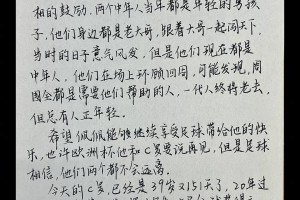 相的鼓励,两个中年人当年都是年轻的男孩
子,他们身边都是老大哥,跟着大哥一起闯天下,
当时的日子意气风发,但是他们现在都是
中年人,他们在场上环顾四周,可能发现,周
围全都是需要他们帮助的人,一代人终将老去,
但总有人正年轻。
希望佩佩能够继续享受足球带给他的快
乐,也许欧洲杯他和C罗要说再见,但是足球
相信,他们两个都不会远离。
今天的C罗,已经是39岁又151天了,20年过